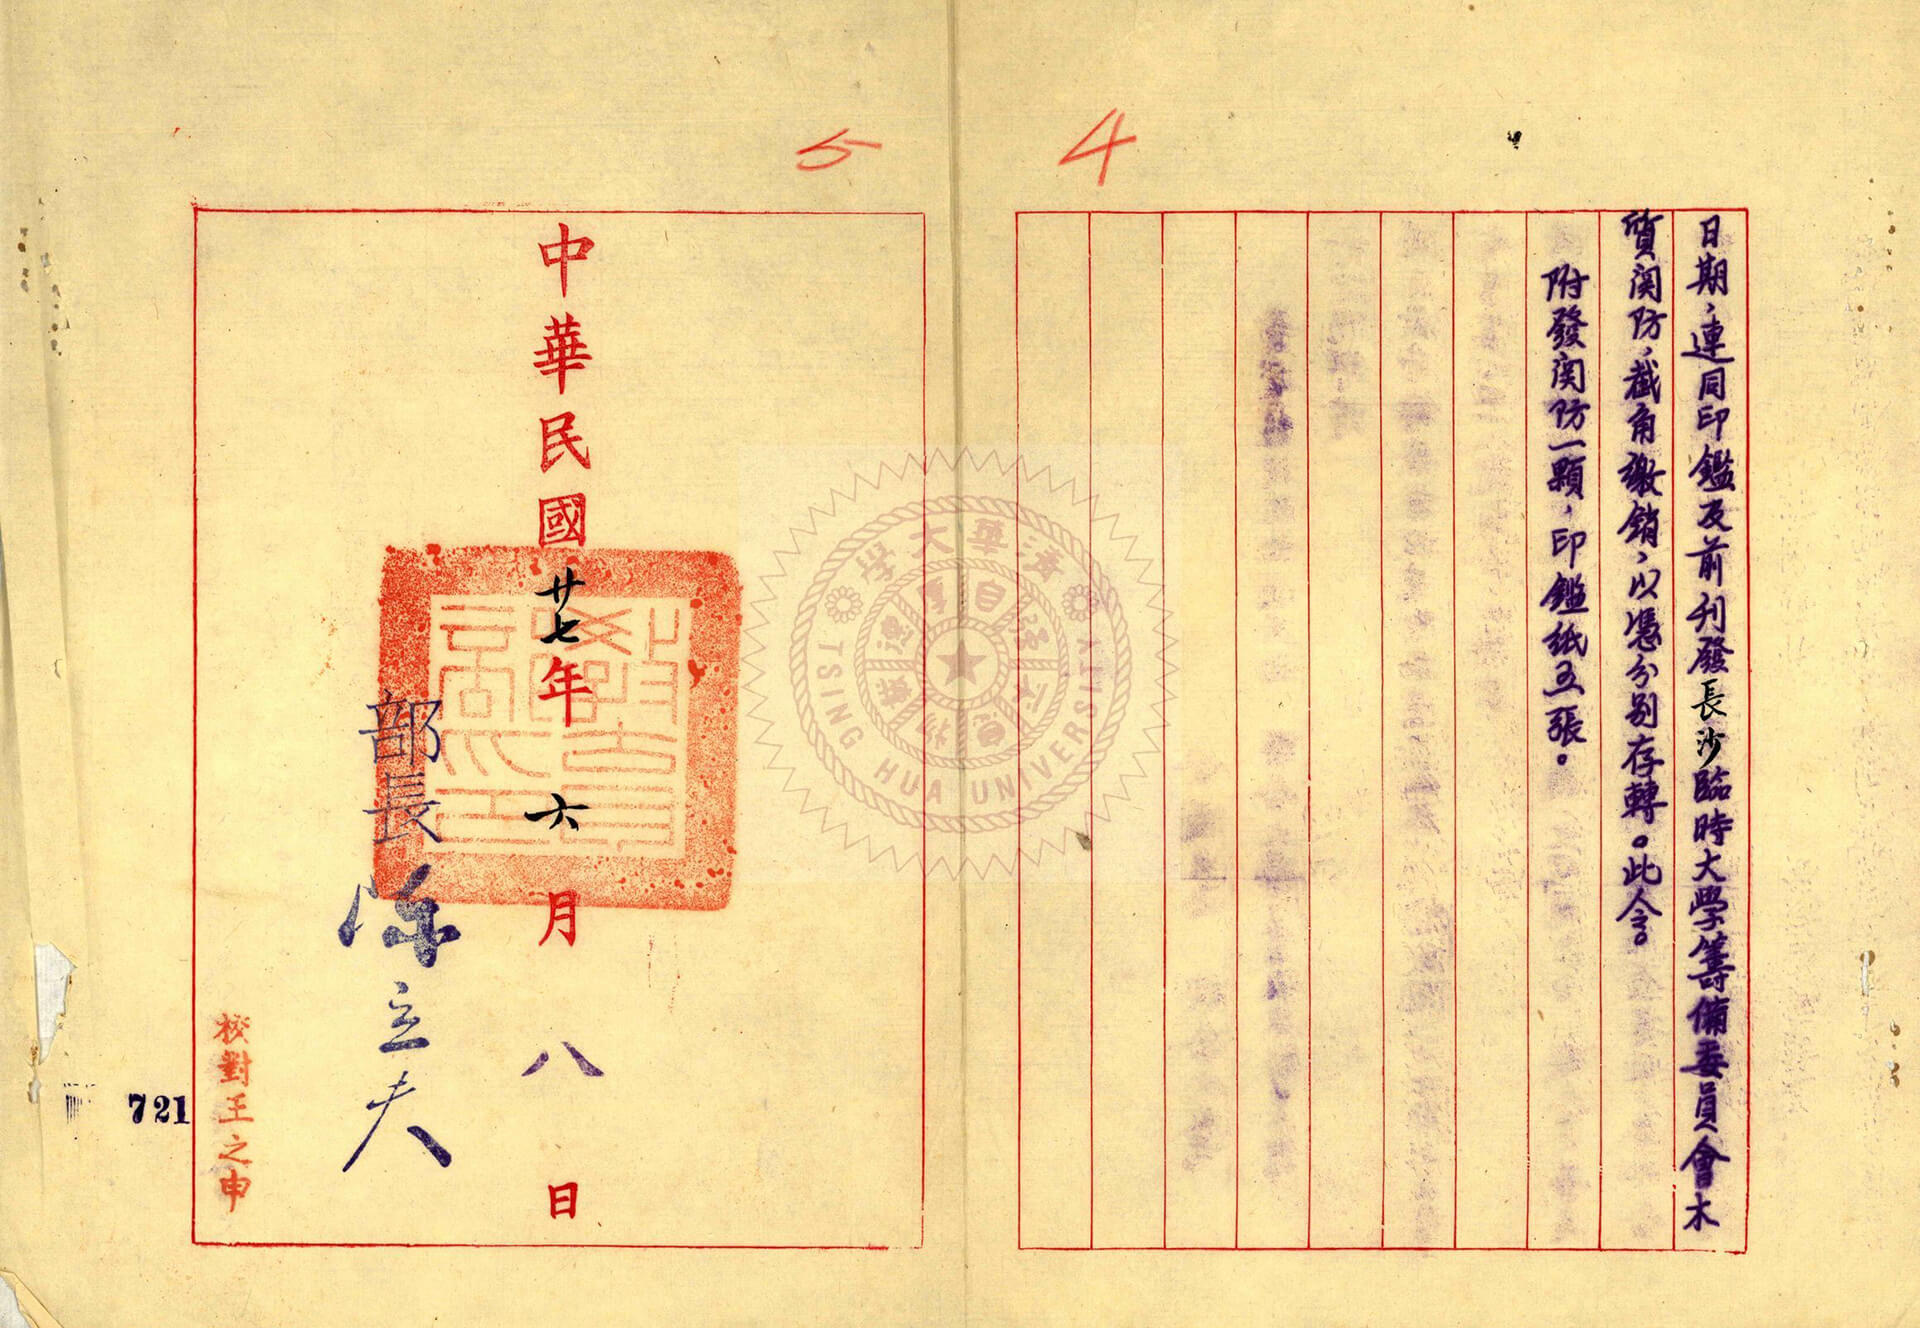 4
日期，連同印鑑及前刊發長沙臨時大學籌備委員會木
質関防，截角繳銷，以憑分別存轉。此令。
附發関防一顆，印鑑紙五張。
5
中華民國廿七年六月八日
教育部印
部長陳立夫
校對王之申
721
清華大學
自強不息
厚德載物
TSING HUA UNIVERSITY